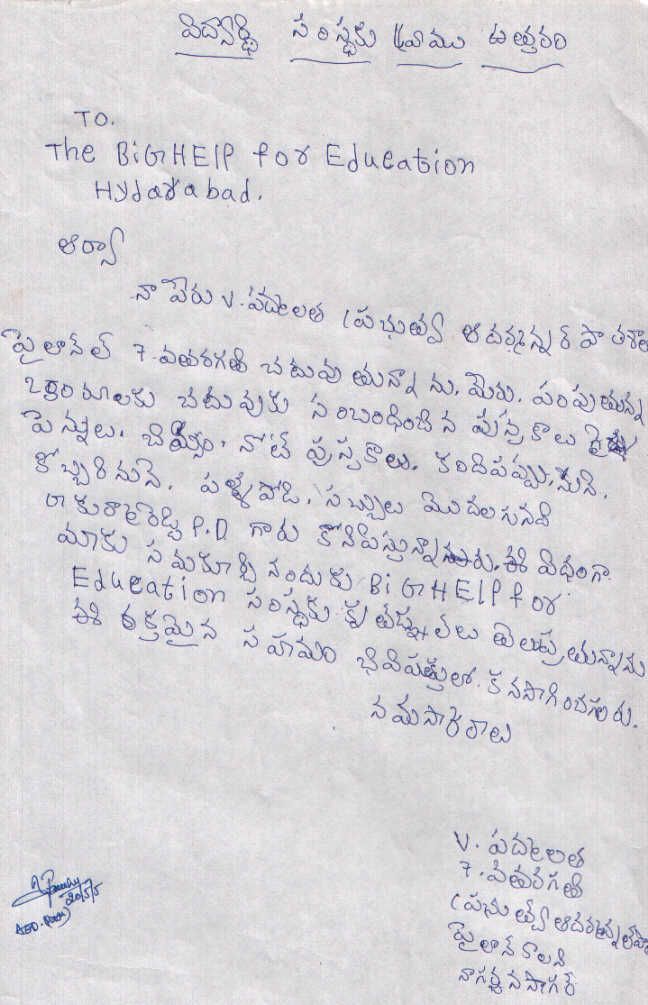 విద్యార్థి సంస్థకు వ్రాయు ఉత్తరం
TO.
The BiGHElP for Education
Hydarabad.
ఆర్యా
నా పేరు V. పద్మలత ప్రభుత్వ ఆదర్శాన్నర పాఠశాల
పైలాన్ లో 7. వతరగతి చదువు తున్నా ను. మీరు. పంపుతున్న
చదువుకు సంబంధించిన పుస్తకాలు
పెన్నులు. నోట్ పుస్తకాలు. కందిపప్పు, నూనె.
కొబ్బరినూనె. పళ్ళపోడి. సబ్బులు మొదలగునవి
P.D గారు కొనిపిస్తున్నారు. ఈ విధంగా
మాకు సమకూర్చి నందుకు BiGHElP for
Education సంస్థకు కృతజ్ఞతలు తెలుపుతున్నాను
ఈ రక్తమైన సహయం భవిషత్తులో కనసాగించగలరు.
నమస్కారాలు
V. పద్మలత
7. వతరగతి
ప్రభుత్వ
పైలాన్ కాలని
నాగర్జునసాగర్
20/5/5